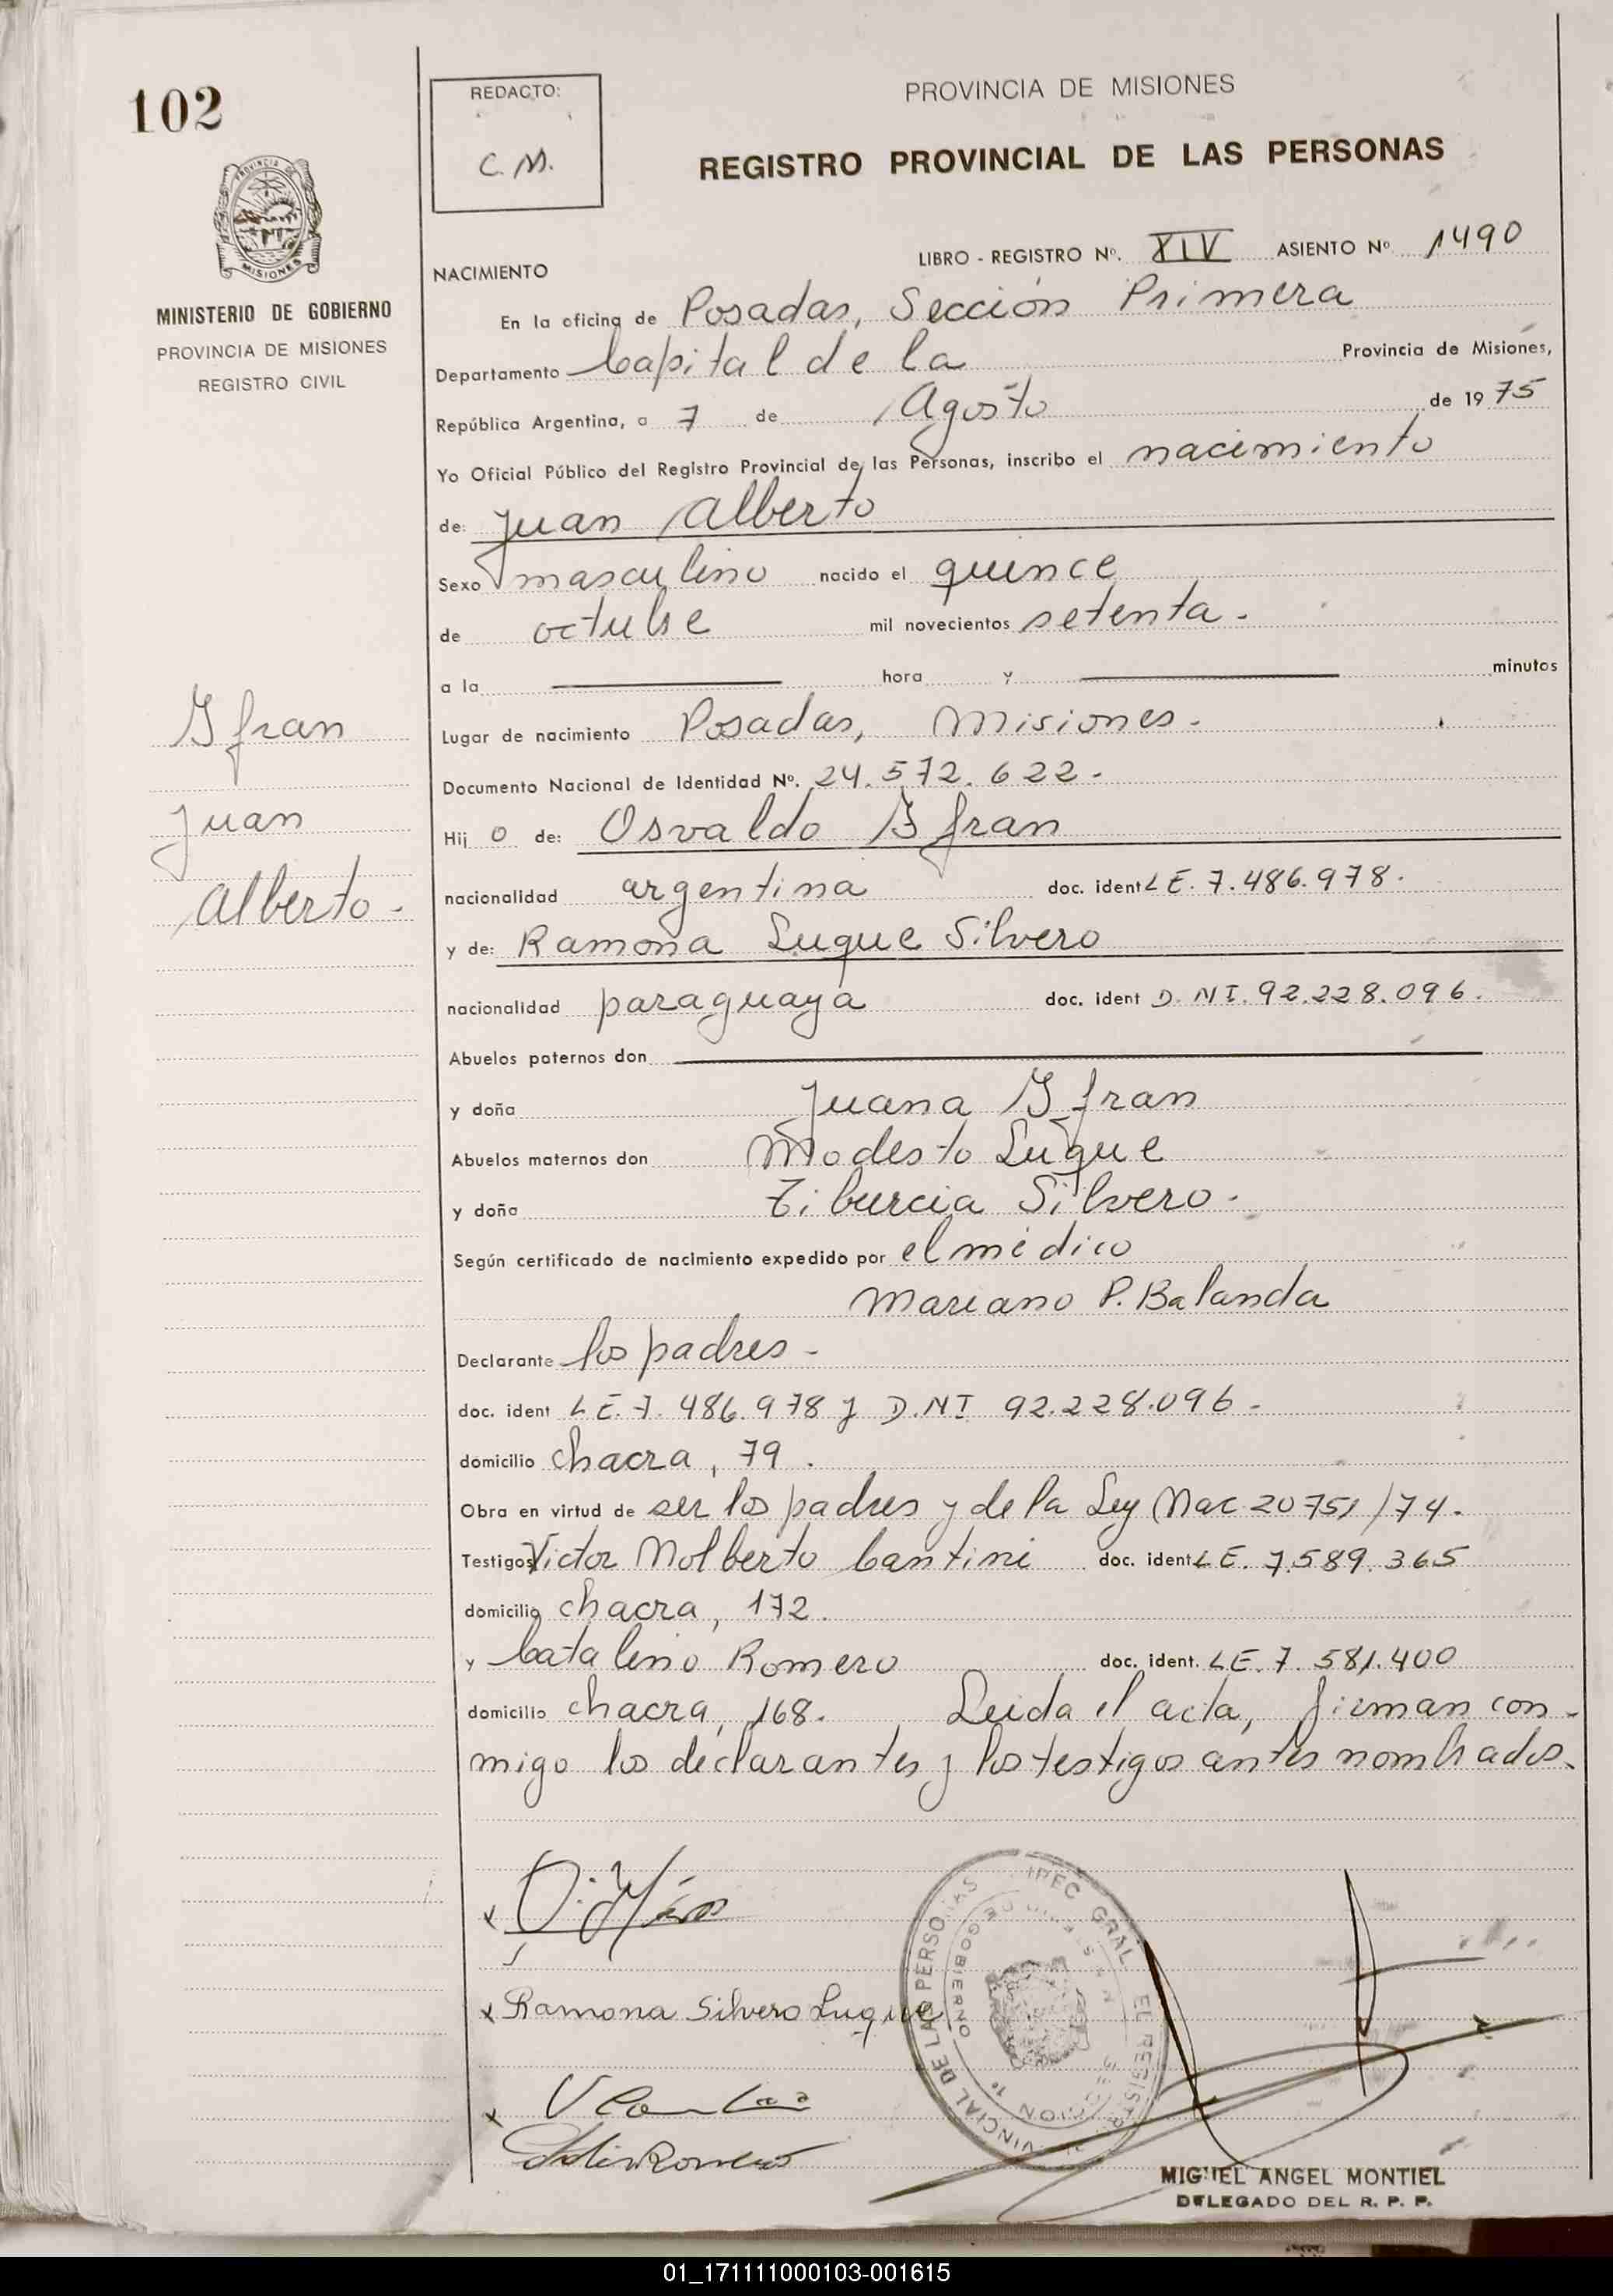 102
REDACTO:
C. M.
PROVINCIA DE MISIONES
REGISTRO PROVINCIAL DE LAS PERSONAS
PROVINCIA DE
MISIONES
MINISTERIO DE GOBIERNO
PROVINCIA DE MISIONES
REGISTRO CIVIL
LIBRO - REGISTRO Nº. XIV ASIENTO Nº 1490
NACIMIENTO
En la oficina de Posadas, Sección Primera
Departamento Capital de la Provincia de Misiones,
República Argentina, a 7 de Agosto de 1975
Yo Oficial Público del Registro Provincial de las Personas, inscribo el nacimiento
de: Juan Alberto
Sexo masculino nacido el quince
de octubre mil novecientos setenta.
a la hora y minutos
Lugar de nacimiento Posadas, Misiones.
Documento Nacional de Identidad Nº. 24.572.622.
Hijo de: Osvaldo Ifran
nacionalidad argentina doc. ident LE. 7.486.978.
y de: Ramona Luque Silvero
nacionalidad paraguaya doc. ident D.NI. 92.228.096.
Abuelos paternos don
y doña Juana Ifran
Abuelos maternos don Modesto Luque
y doña Tiburcia Silvero.
Según certificado de nacimiento expedido por el médico
Mariano P. Balanda
Declarante los padres.
doc. ident LE. 7.486.978 y D.NI 92.228.096.
domicilio chacra, 79.
Obra en virtud de ser los padres y de la Ley Nac 20751/74.
Testigos Victor Nolberto Cantini doc. ident LE. 7.589.365
domicilio chacra, 172.
y Catalino Romero doc. ident. LE. 7.581.400
domicilio chacra, 168. Leida el acta, firman con-
migo los declarantes y los testigos antes nombrados.
Ifran
Juan
Alberto.
x
x Ramona Silvero Luque
x
DIREC. GRAL. EL REGISTRO PROVINCIAL DE LAS PERSONAS
MINISTERIO DE GOBIERNO
SECCION 1º
MIGUEL ANGEL MONTIEL
DELEGADO DEL R. P. P.
01_171111000103-001615